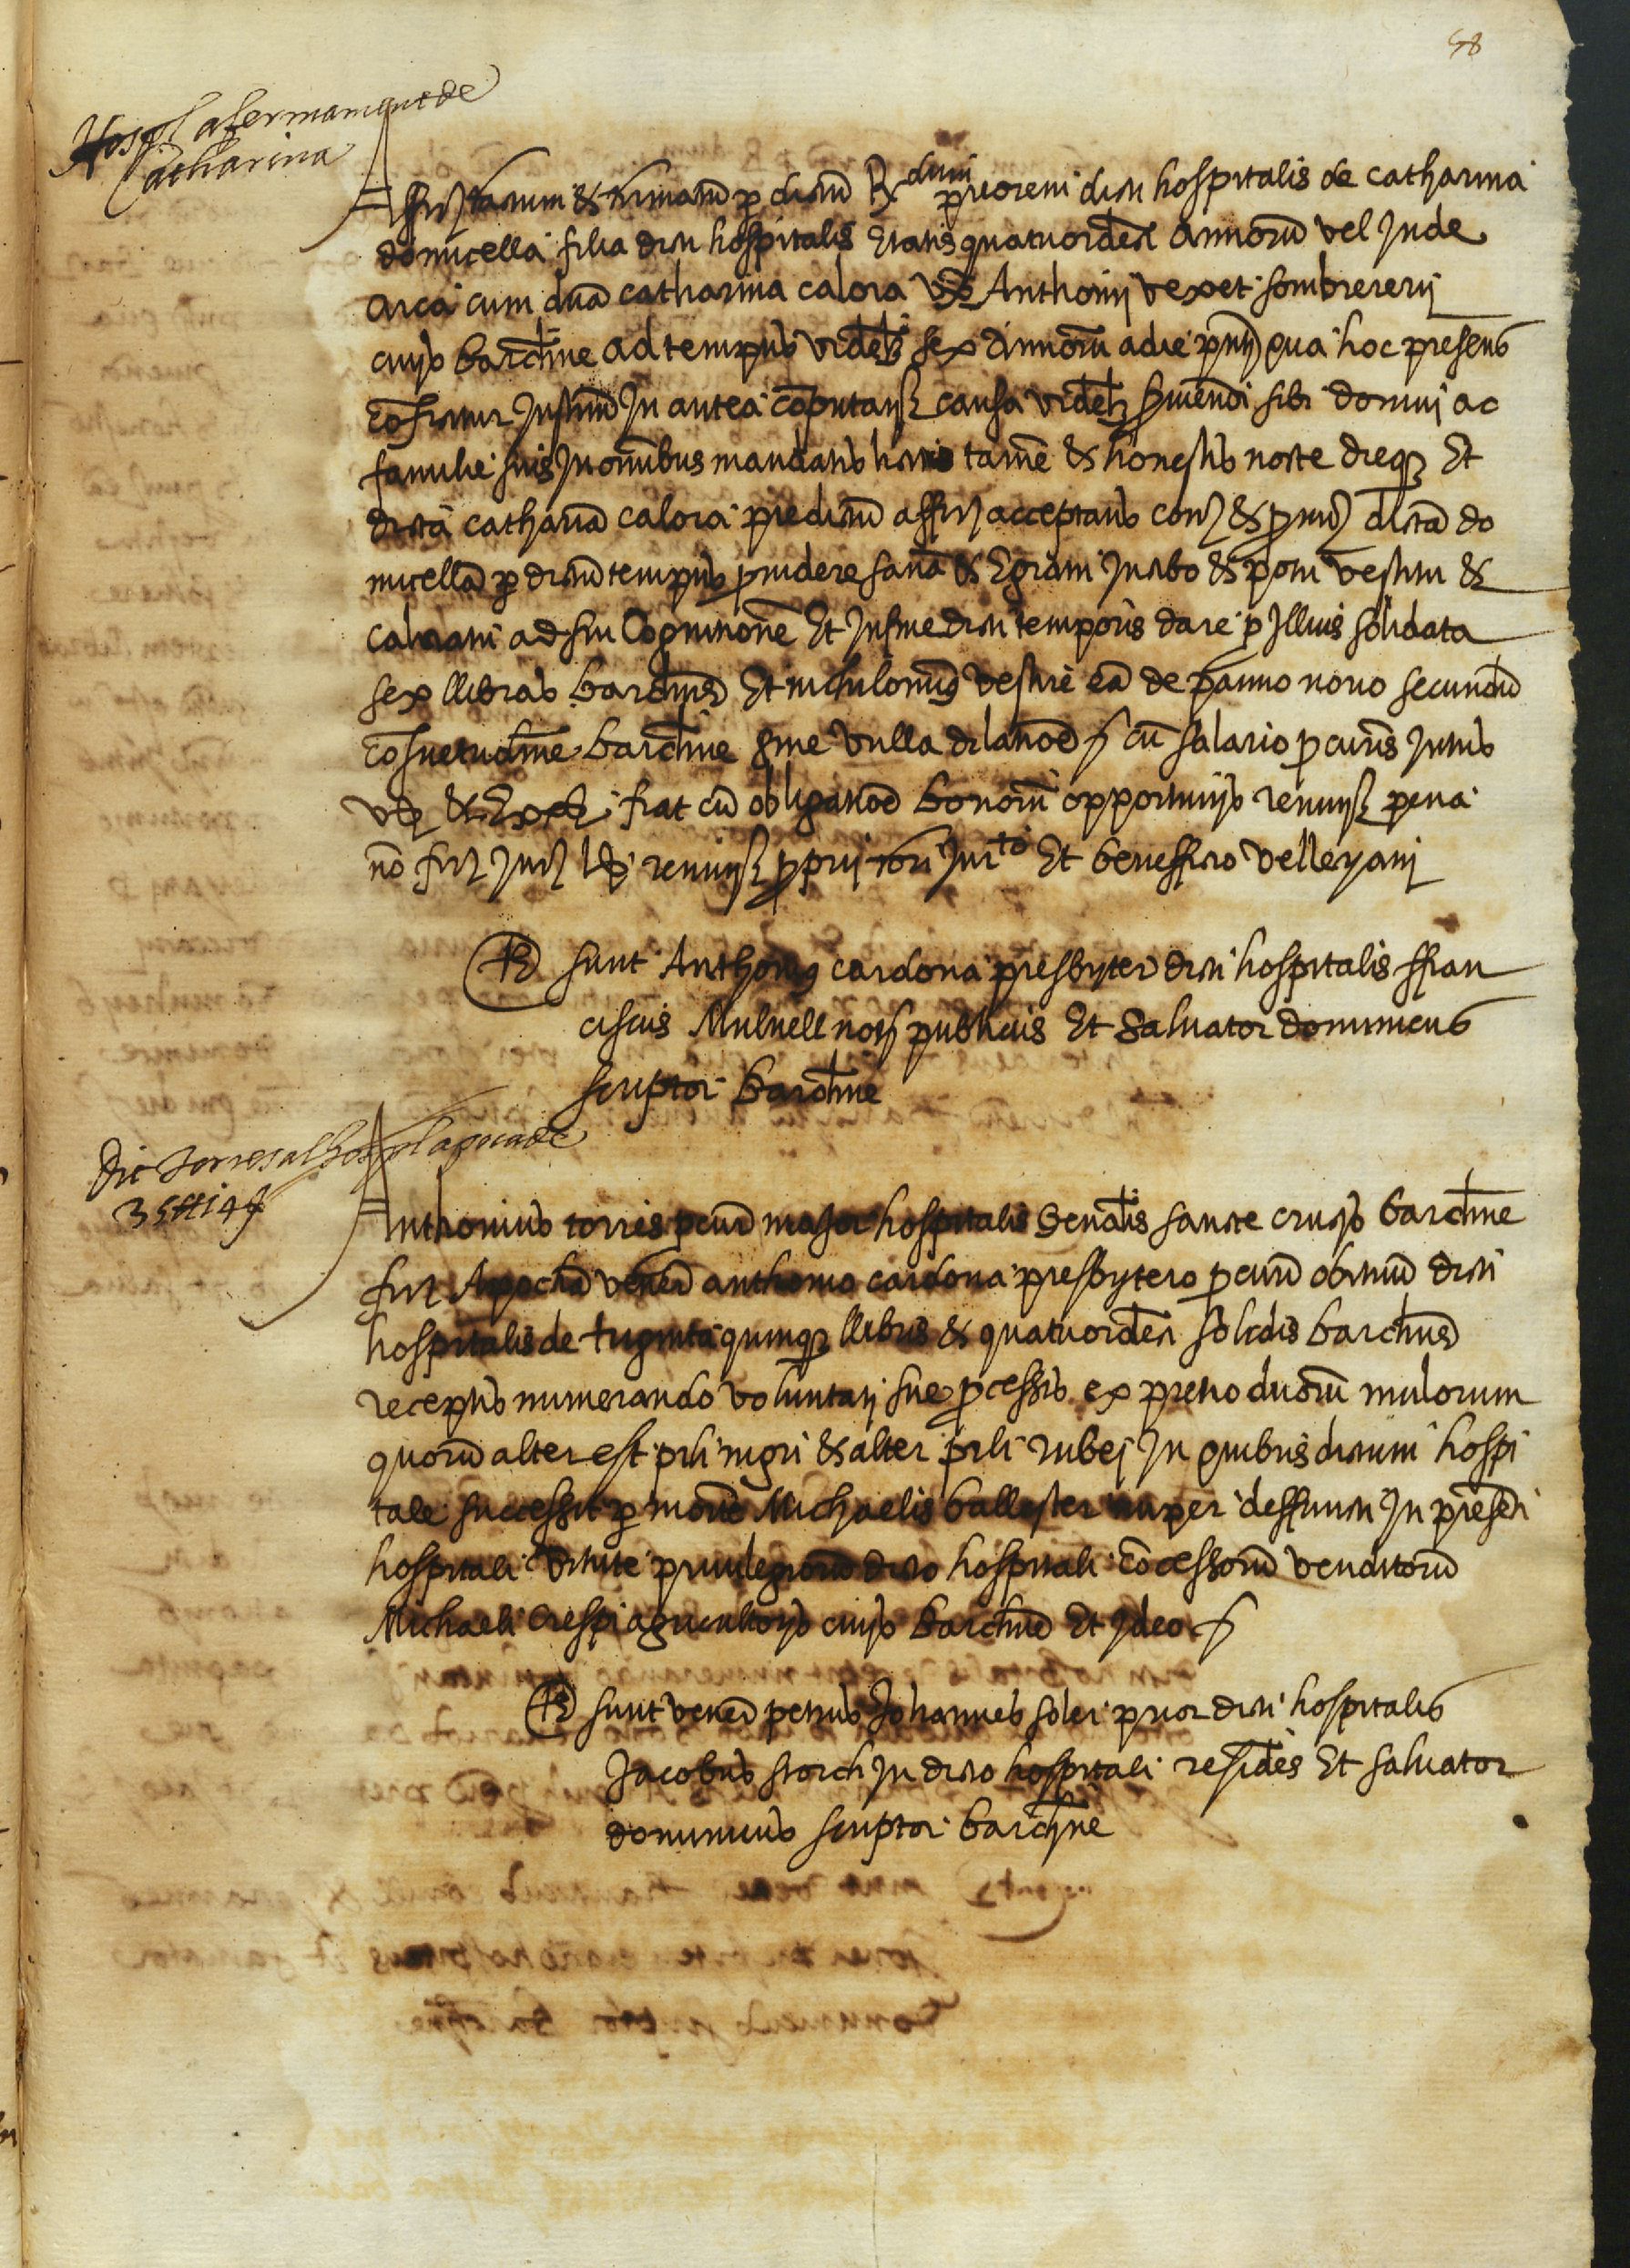 58
Hospl afermament de
Catharina
Affirmatum & firmatũ p dictũ Rdum priorem dicti hospitalis de catharina
domicella filia dicti hospitalis Etatis quatuordeci Annorũ vel Inde
circa cum dña catharina calora vxo Anthonij vexet sombrererij
civis barchne ad tempus videlz sex Annorũ a die pñti qua hoc presens
cõficitur Instrũ In antea cõputan causa videlz serviendi sibi domuj ac
familie suis In omnibus mandatis licitis tamẽ & honestis nocte dieqz Et
dicta catharina calora predictũ affir acceptans conv & promi dictã do
micellã p dictũ tempus pvidere sanã & Egram In cibo & potu vestitu &
calciatu ad sui Cognitionẽ Et In fine dicti temporis dare p Illius solidata
sex llibras barchns Et nichilominus vestire eã de panno novo secundũ
cõsuetudinẽ barchne sine vulla dilatione cũ salario pcuris Intus
vel & Extra fiat cũ obligatione bonorũ opportunis renun pena
nõ firm Jur renun proprij fori Jurto Et beneficio velleyanj
Ts sunt Anthonius cardona presbyter dicti hospitalis ffran
ciscus Mulnell nots publicus Et Salvator dominicus
scriptor barchne
Dit torres al hospl apoca de
35 lliures 14 s
Anthonius torres pcur major hospitalis Genalis sancte crucis barchne
fir Apocha vener anthonio cardona presbytero pcur obntiũ dicti
hospitalis de triginta quinqz llibris & quatuordeci solidis barchns
receptis numerando voluntati sue pcessis ex precio duorũ mulorum
quorũ alter est pili nigri & alter pili rubej In quibus dictum hospi
tale successit p morte Michaelis ballester nuper deffuncti In presenti
hospitali virtute privilegiorũ dicto hospitali cõcessorũ venditorũ
Michaeli Crespi agricultoris civis barchne Et Ideo
Ts sunt vener petrus Johannes soler prior dicti hospitalis
Jacobus storch In dicto hospitali residẽs Et salvator
dominicus scriptor barchne